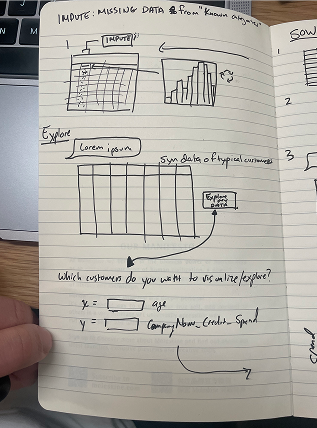 IMPUTE: MISSING DATA from "Known categories"
1
IMPUTE
Explore
Lorem ipsum
Syn data of typical customers
Explore
DATA
Which customers do you want to visualize/explore?
x = age
y = CompanyName_Credit_Spend
Sow
1
2
3
Spend